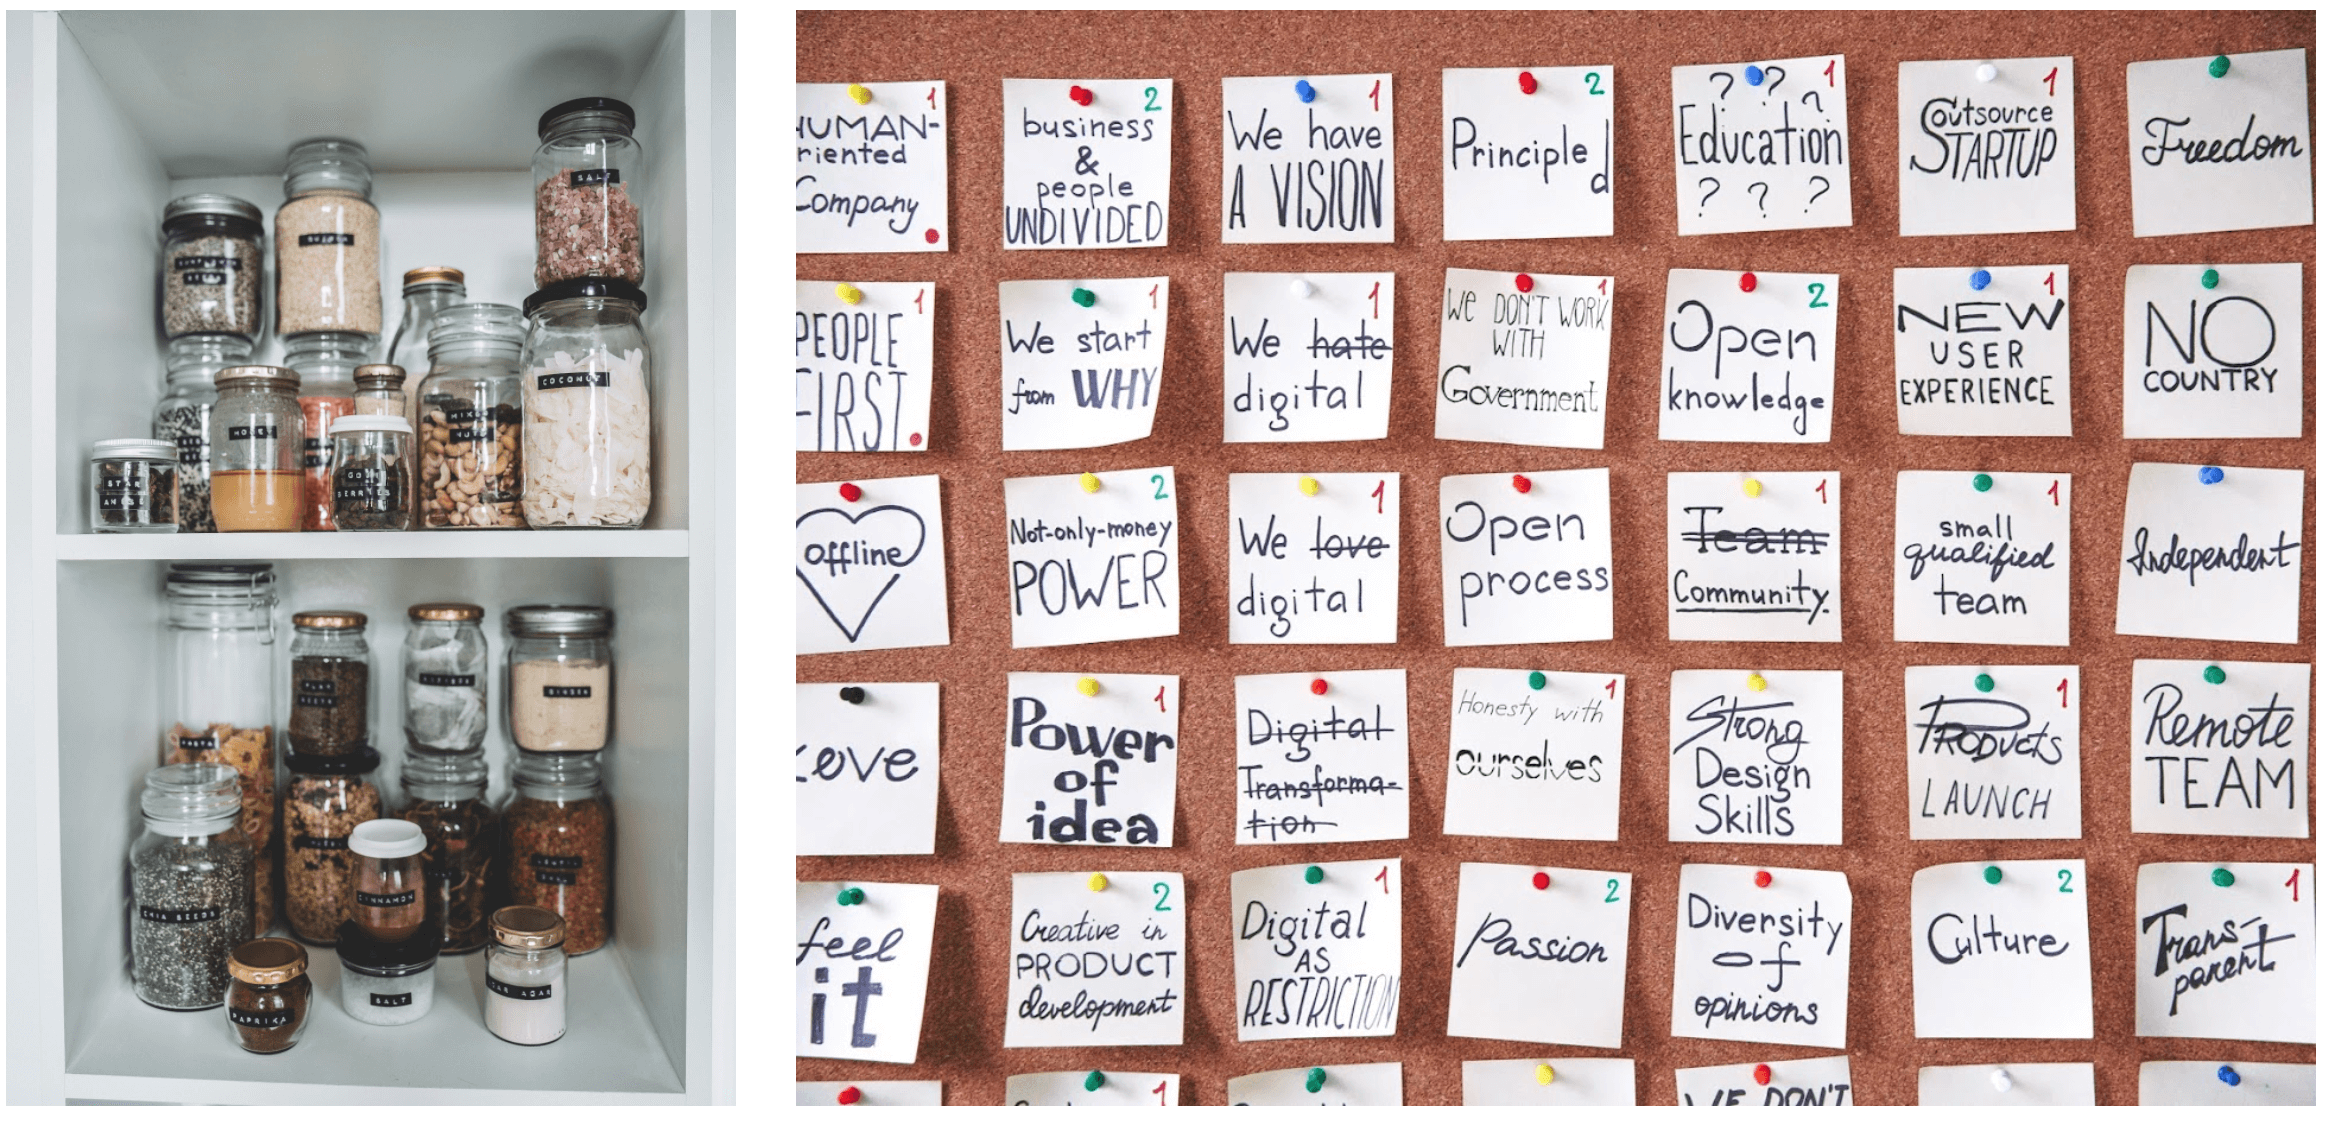 SALT
COCONUT
HONEY
MIXED
NUTS
STAR
ANISE
GOJI
BERRIES
PASTA
FLAX
SEEDS
GINGER
CHIA SEEDS
CINNAMON
PAPRIKA
SALT
AGAR AGAR
1
HUMAN-
riented
Company
2
business
&
people
UNDIVIDED
1
We have
A VISION
2
Principled
? ? 1
?
Education
? ? ?
1
Outsource
STARTUP
Freedom
1
PEOPLE
FIRST
1
We start
from WHY
1
We hate
digital
1
We DON'T WORK
WITH
Government
2
Open
knowledge
1
NEW
USER
EXPERIENCE
NO
COUNTRY
offline
2
Not-only-money
POWER
1
We love
digital
Open
process
1
Team
Community
1
small
qualified
team
Independent
Love
1
Power
of
idea
Digital
Transforma-
tion
1
Honesty with
ourselves
Strong
Design
Skills
1
PRODUCTS
LAUNCH
Remote
TEAM
feel
it
2
Creative in
PRODUCT
development
1
Digital
AS
RESTRICTION
2
Passion
Diversity
of
opinions
2
Culture
1
Trans-
parent
1
WE DON'T